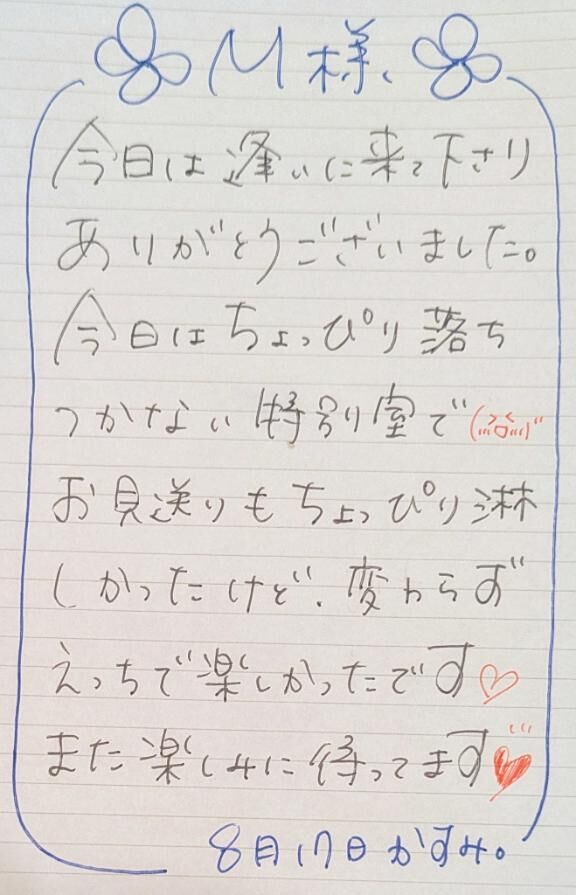 M様、
今日は逢いに来て下さり
ありがとうございました。
今日はちょっぴり落ち
つかない特別室で
お見送りもちょっぴり淋
しかったけど、変わらず
えっちで楽しかったです♡
また楽しみに待ってます♥
8月17日かすみ。